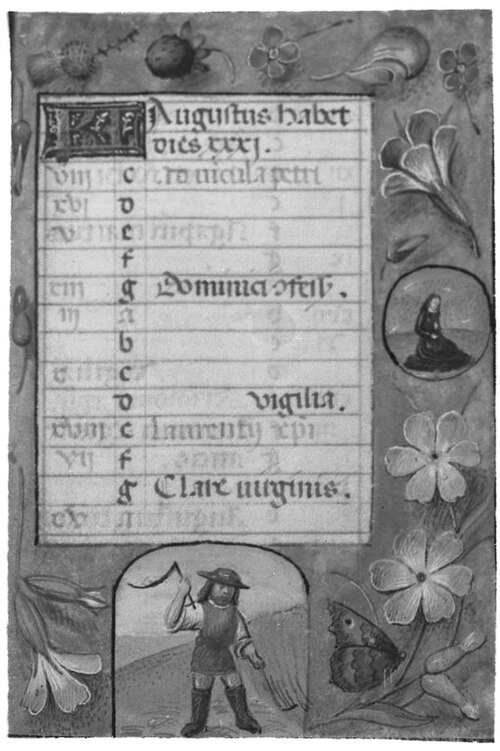 Kl Augustus habet
dies xxxj.
viii c Ad vincula petri
xvi d
v e
f
xiii g Dominici ɔfess.
iii a
b
c
d vigilia.
xviii e Laurentij
vij f
g Clare virginis.
a